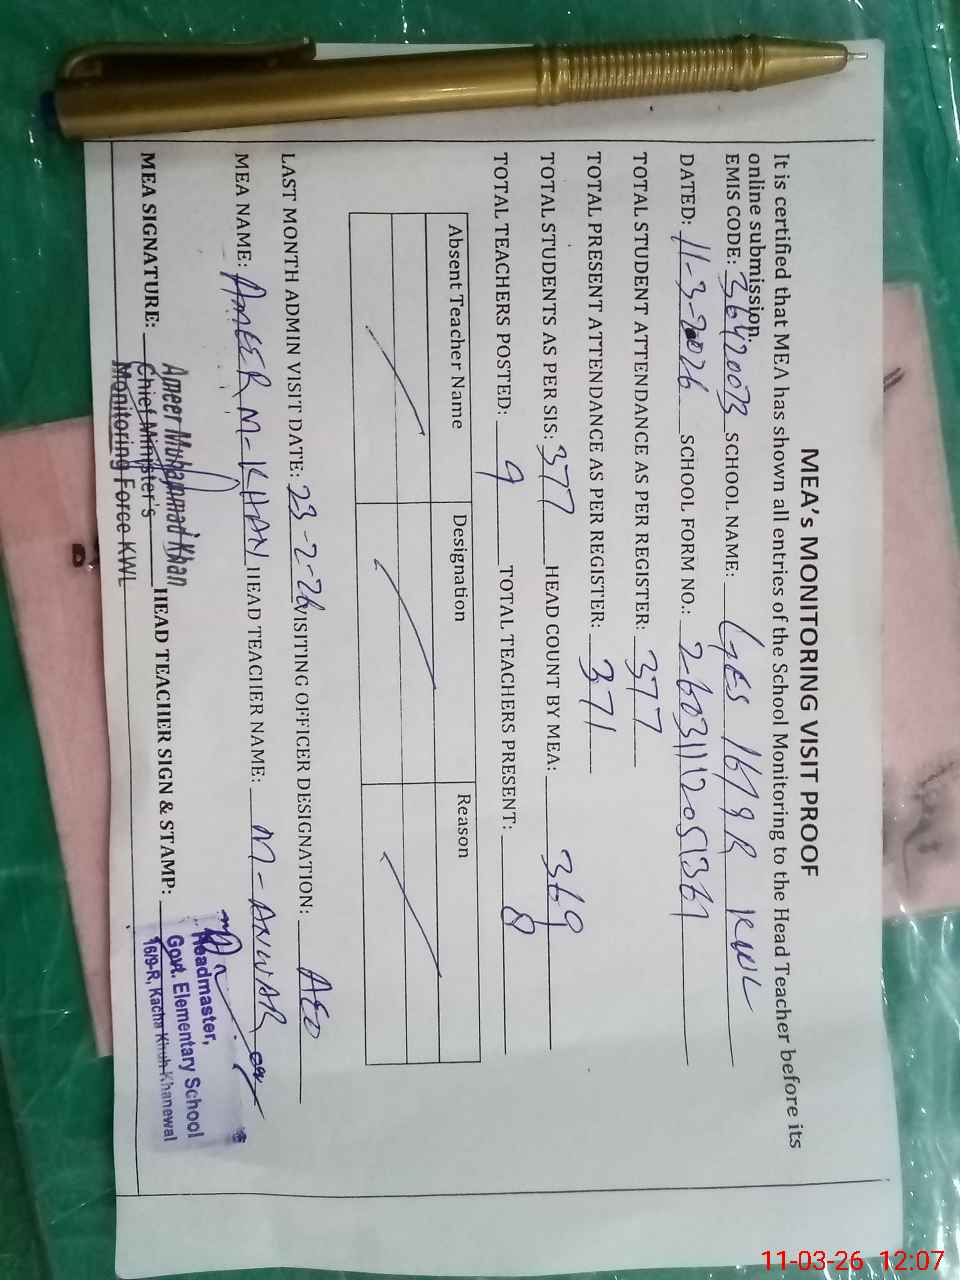 MEA's MONITORING VISIT PROOF
It is certified that MEA has shown all entries of the School Monitoring to the Head Teacher before its
online submission.
EMIS CODE: 36420073 SCHOOL NAME: GES 16/9R KWL
DATED: 11-3-2026 SCHOOL FORM NO.: 26031112051361
TOTAL STUDENT ATTENDANCE AS PER REGISTER: 377
TOTAL PRESENT ATTENDANCE AS PER REGISTER: 371
TOTAL STUDENTS AS PER SIS: 377 HEAD COUNT BY MEA: 369
TOTAL TEACHERS POSTED: 9 TOTAL TEACHERS PRESENT: 8
Absent Teacher Name Designation Reason
LAST MONTH ADMIN VISIT DATE: 23-2-26 VISITING OFFICER DESIGNATION: AEO
MEA NAME: AMEER M-KHAN HEAD TEACHER NAME: M-ANWAR
MEA SIGNATURE: HEAD TEACHER SIGN & STAMP:
Ameer Muhammad Khan
Chief Minister's
Monitoring Force KWL
Headmaster,
Govt. Elementary School
16/9-R, Kacha Khuh Khanewal
11-03-26 12:07